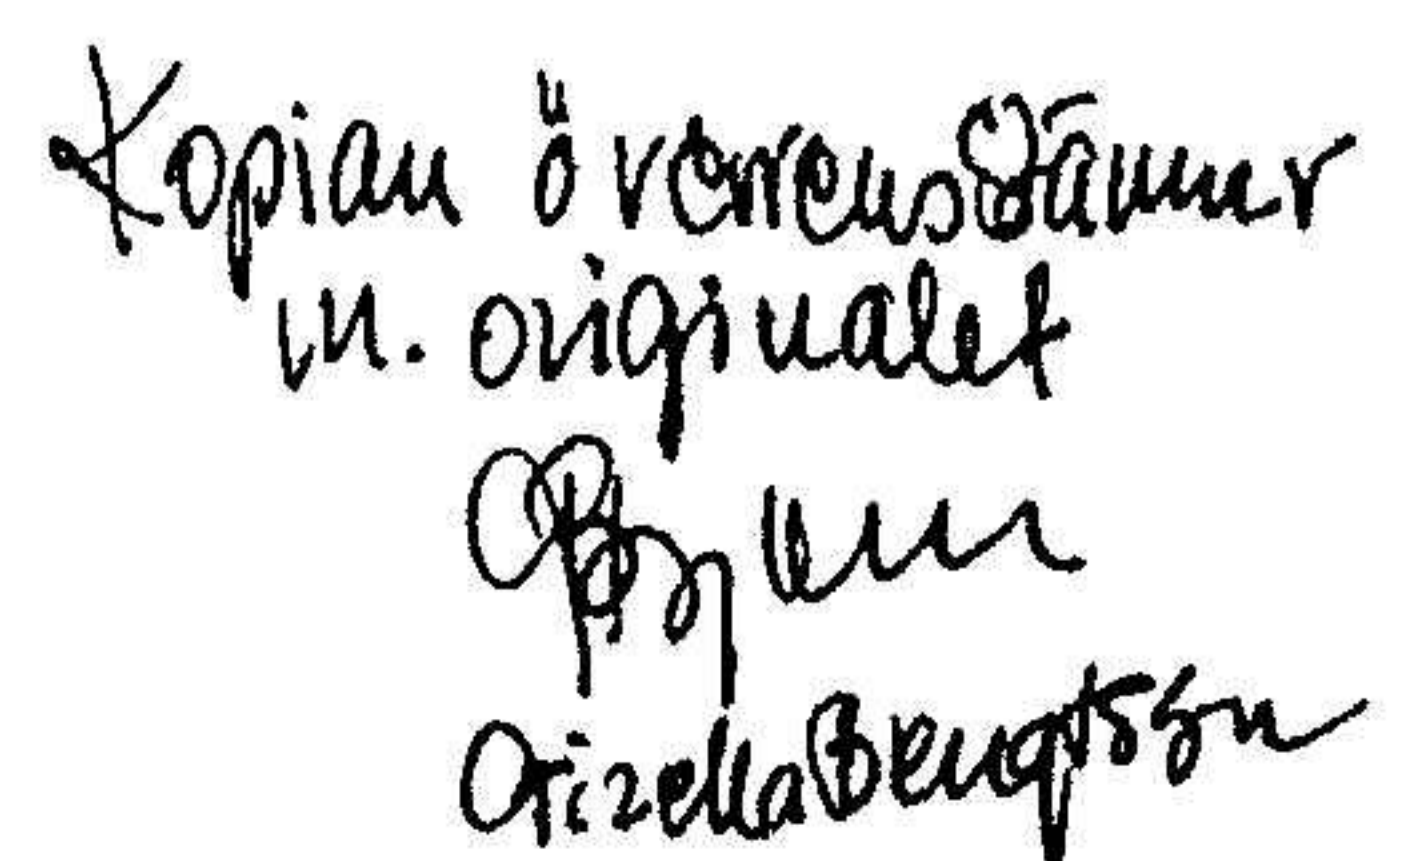 Kopian överrensstämmer
m. originalet
Gizella Bengtsson